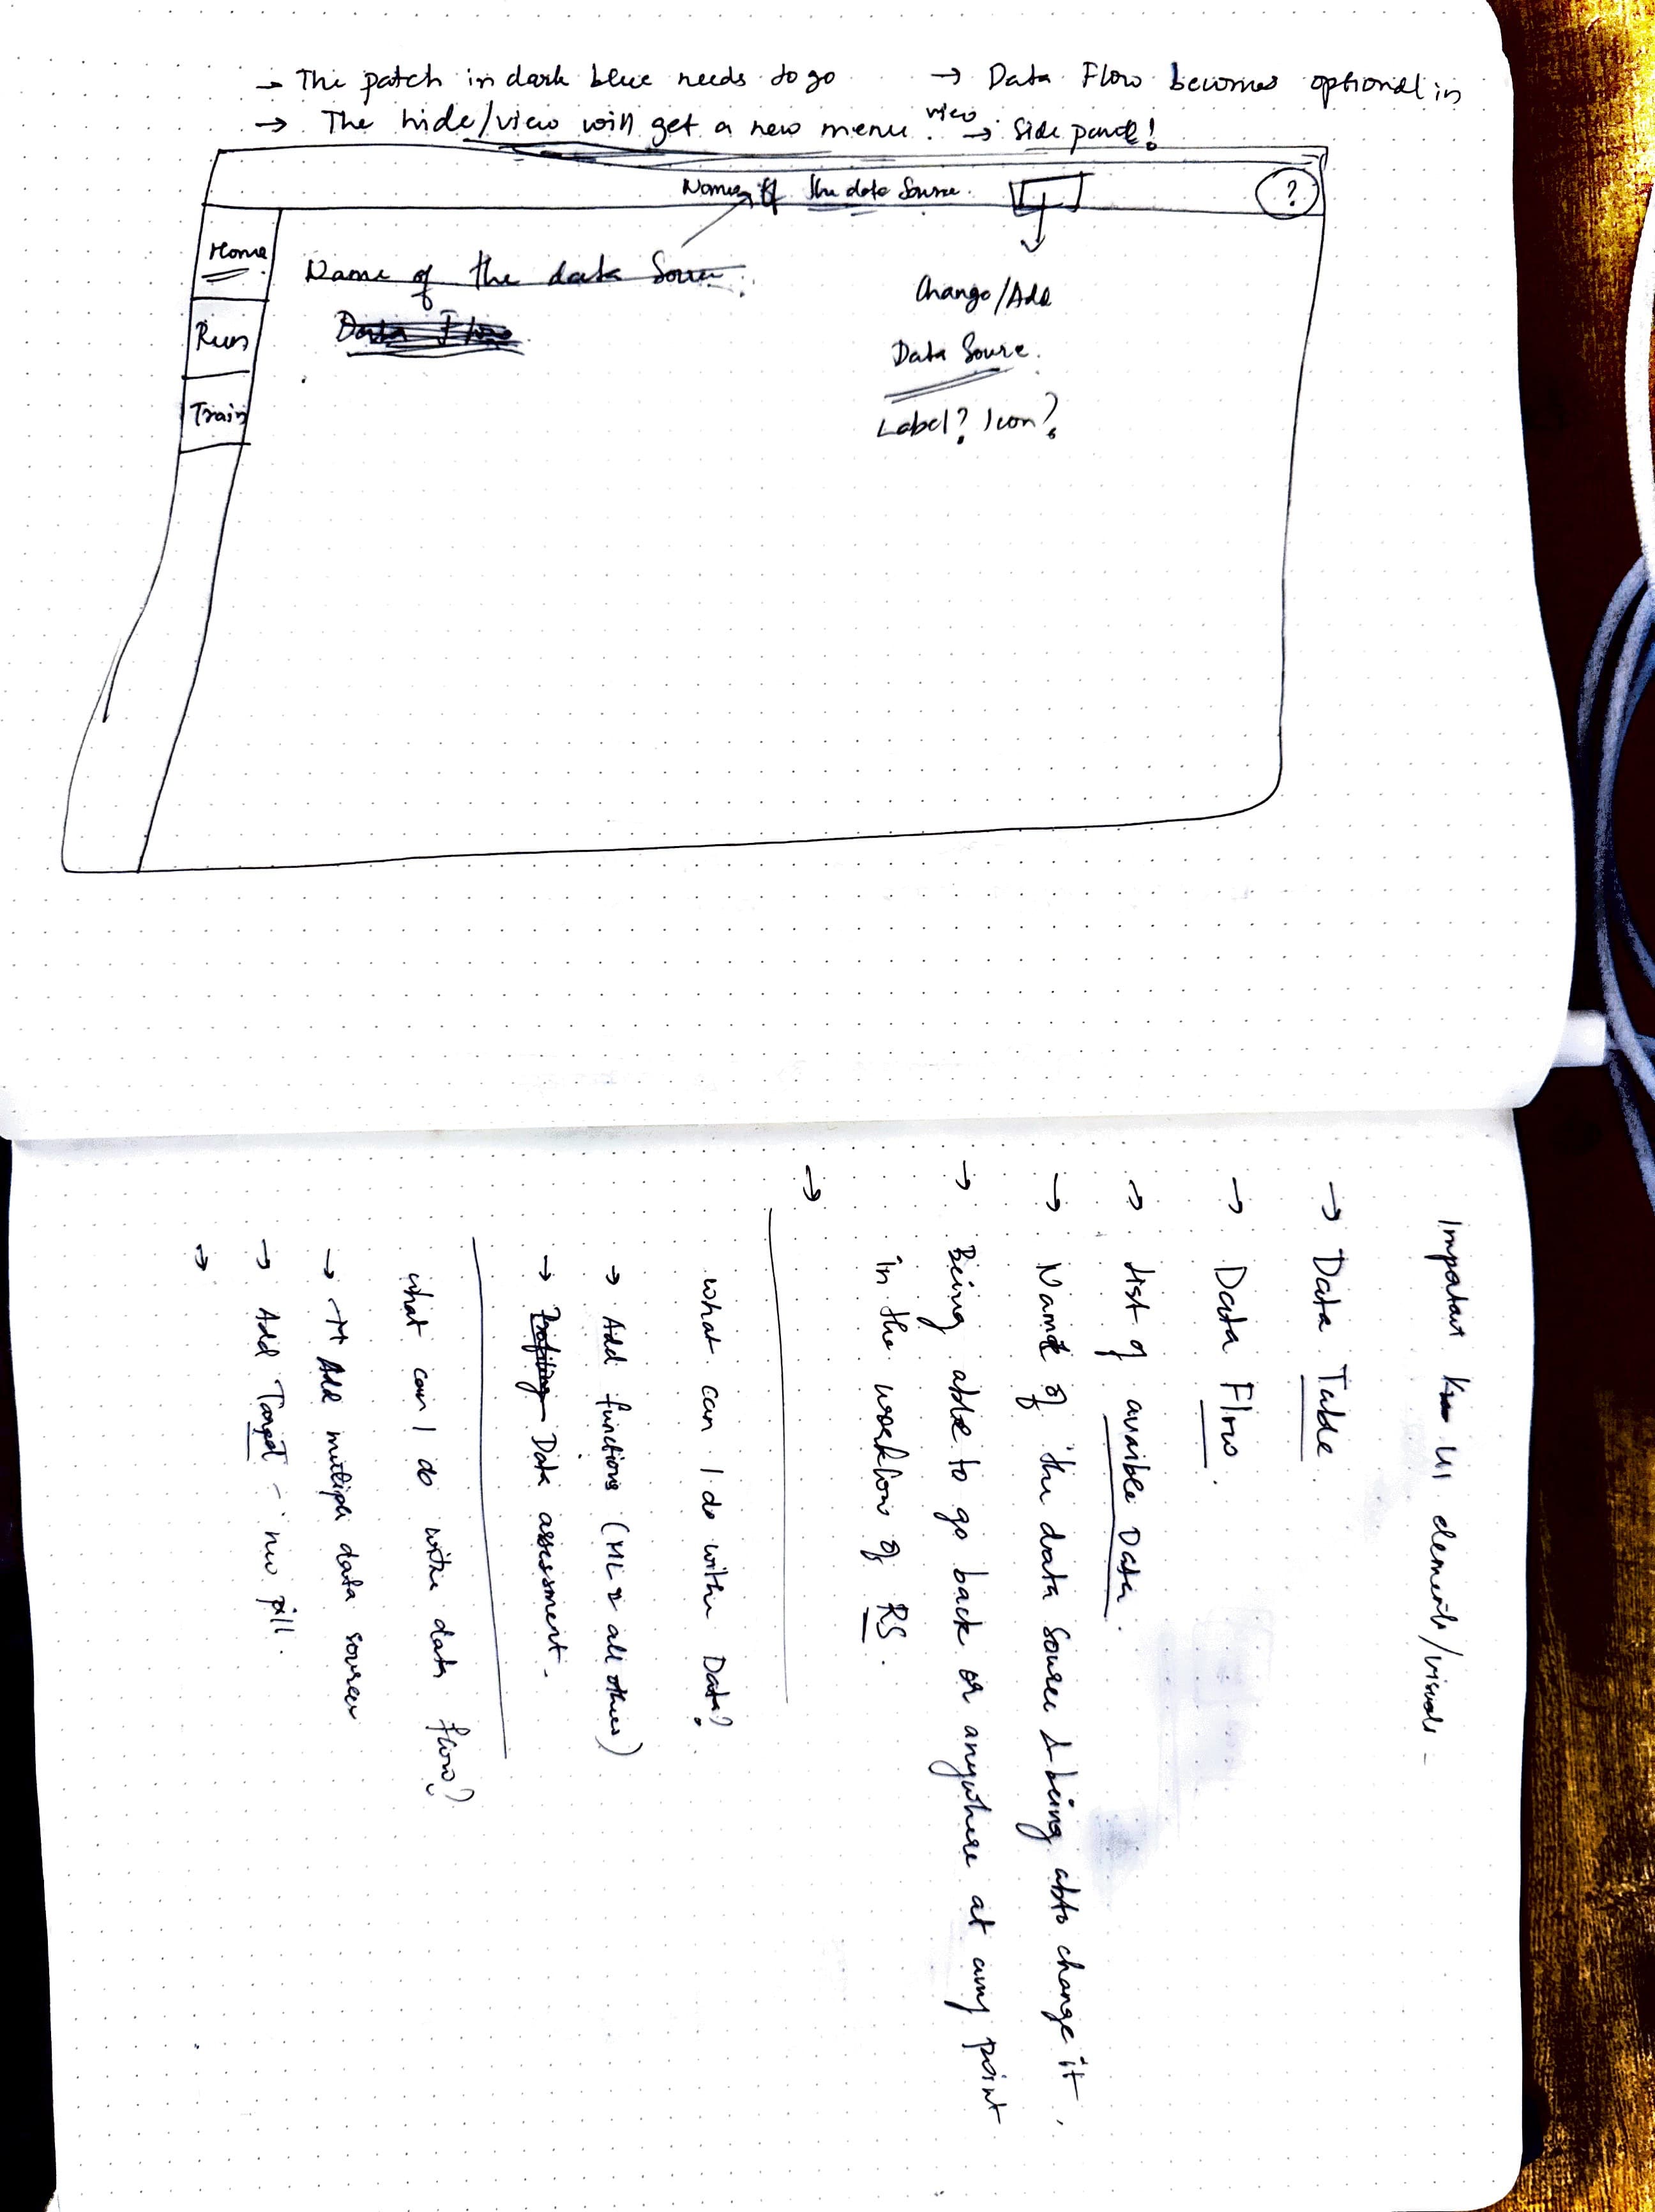 → The patch in dark blue needs to go → Data Flow becomes optional in
→ The hide/view will get a new menu. view → Side panel!
Name of the data source. ?
Home
Name of the data Source.
Data Flow
Run
Train
Change/Add
Data Source.
Label? Icon?
Important UI elements/visuals -
→ Data Table.
→ Data Flow.
→ List of availble Data.
→ Name of the data source & being able to change it.
→ Being able to go back or anywhere at any point
in the workflow of RS.
→
What can I do with Data?
→ Add functions (ML & all other)
→ Profiling Data assessment.
What can I do with data flow?
→ Add multiple data sources
→ Add Target - new pill.
→